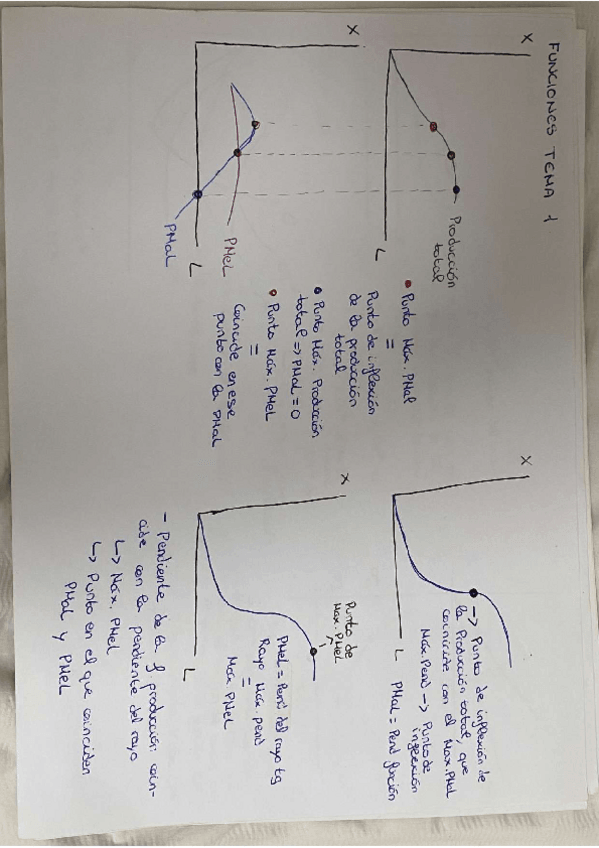 FUNCIONES TEMA 1
X
L
Producción
total
• Punto Máx. PMaL
=
Punto de inflexión
de la producción
total
X
L
PMeL
PMaL
• Punto Máx. Producción
total => PMaL = 0
• Punto Máx. PMeL
=
Coincide en ese
punto con la PMaL
X
L
-> Punto de inflexión de
la Producción total, que
coincide con el Max. PMaL
Máx. Pend -> Punto de
inflexión
PMaL = Pend función
X
L
Punto de
Máx. PMeL
PMeL = Pend del rayo tg
Rayo Máx. pend
=
Máx PMeL
- Pendiente de la f. producción coin-
cide con la pendiente del rayo
↳ Máx. PMeL
↳ Punto en el que coinciden
PMaL y PMeL